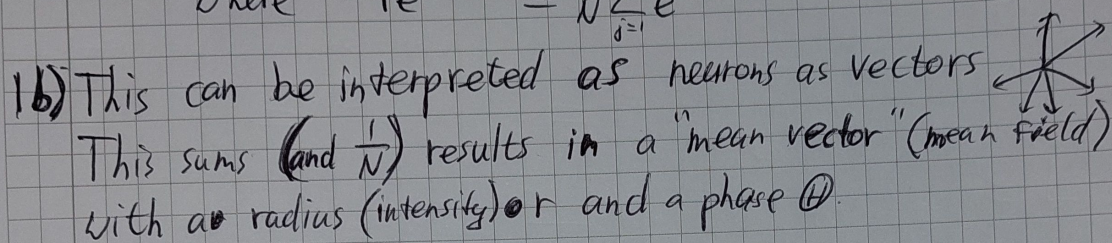 where re = N Σ e
j=1
1b) This can be interpreted as neurons as vectors
This sums (and 1/N) results in a "mean vector" (mean field)
with a radius (intensity) r and a phase Θ.